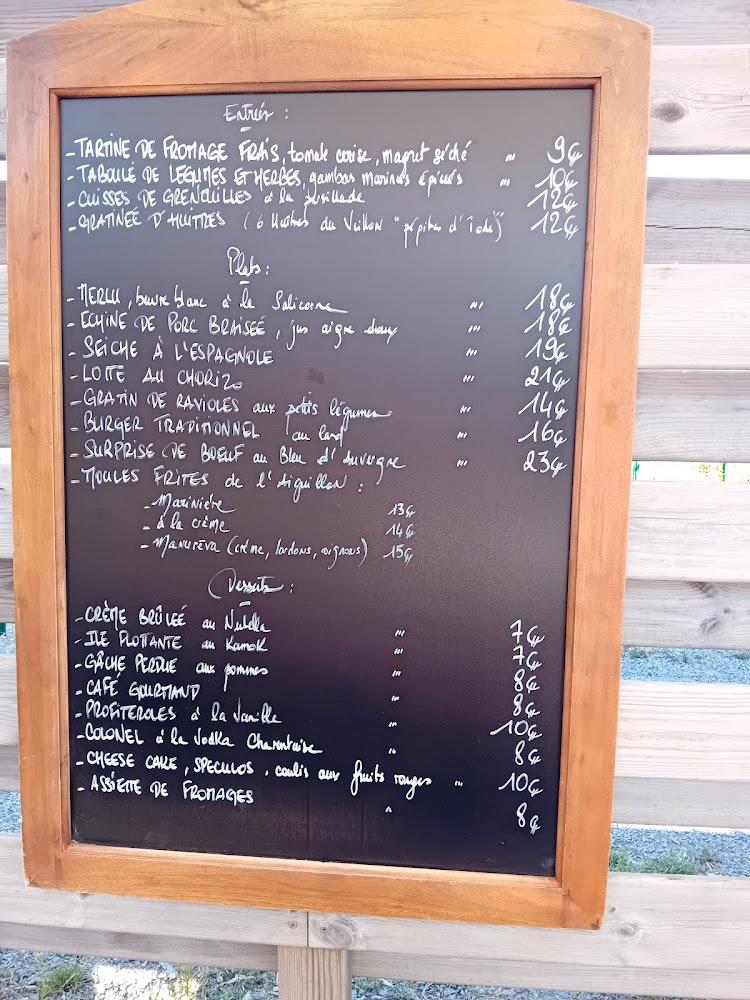 Entrées :
- TARTINE DE FROMAGE FRAIS, tomate cerise, magret séché " 9€
- TABOULÉ DE LEGUMES ET HERBES, gambas marinées épicées " 10€
- CUISSES DE GRENOUILLES à la persillade 12€
- GRATINÉE D'HUITRES (6 Huîtres du Veillon "pépites d'Iode)" 12€
Plats :
- MERLU, beurre blanc à la Salicorne " 18€
- ECHINE DE PORC BRAISEÉ, jus aigre doux " 18€
- SEICHE À L'ESPAGNOLE " 19€
- LOTTE AU CHORIZO " 21€
- GRATIN DE RAVIOLES aux petits légumes " 14€
- BURGER TRADITIONNEL au lard " 16€
- SURPRISE DE BOEUF au Bleu d'Auvergne " 23€
- MOULES FRITES de l'Aiguillon :
- Marinière 13€
- à la crème 14€
- Manureva (crème, lardons, oignons) 15€
Desserts :
- CRÈME BRÛLEÉ au Nutella " 7€
- ILE FLOTTANTE au Kamok " 7€
- GÂCHE PERDUE aux pommes " 8€
- CAFÉ GOURMAND " 8€
- PROFITEROLES à la Vanille " 10€
- COLONEL à la Vodka Charentaise " 8€
- CHEESE CAKE, SPECULOS, coulis aux fruits rouges " 10€
- ASSIETTE DE FROMAGES " 8€